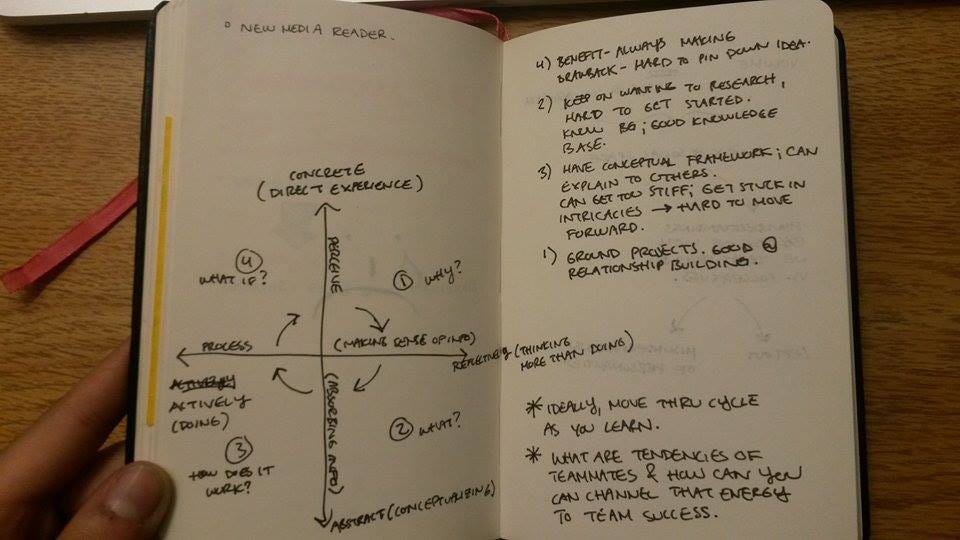 ° NEW MEDIA READER.
CONCRETE
(DIRECT EXPERIENCE)
PERCEIVE
4
WHAT IF?
1 WHY?
PROCESS
(MAKING SENSE OF INFO)
REFLECTIVELY (THINKING
MORE THAN DOING)
ACTIVELY
(DOING)
(ABSORBING INFO)
2 WHAT?
3
HOW DOES IT
WORK?
ABSTRACT (CONCEPTUALIZING)
4) BENEFIT - ALWAYS MAKING
DRAWBACK - HARD TO PIN DOWN IDEA.
2) KEEP ON WANTING TO RESEARCH,
HARD TO GET STARTED.
KNOW BG; GOOD KNOWLEDGE
BASE.
3) HAVE CONCEPTUAL FRAMEWORK; CAN
EXPLAIN TO OTHERS.
CAN GET TOO STIFF; GET STUCK IN
INTRICACIES → HARD TO MOVE
FORWARD.
1) GROUND PROJECTS. GOOD @
RELATIONSHIP BUILDING.
* IDEALLY, MOVE THRU CYCLE
AS YOU LEARN.
* WHAT ARE TENDENCIES OF
TEAMMATES & HOW CAN YOU
CAN CHANNEL THAT ENERGY
TO TEAM SUCCESS.